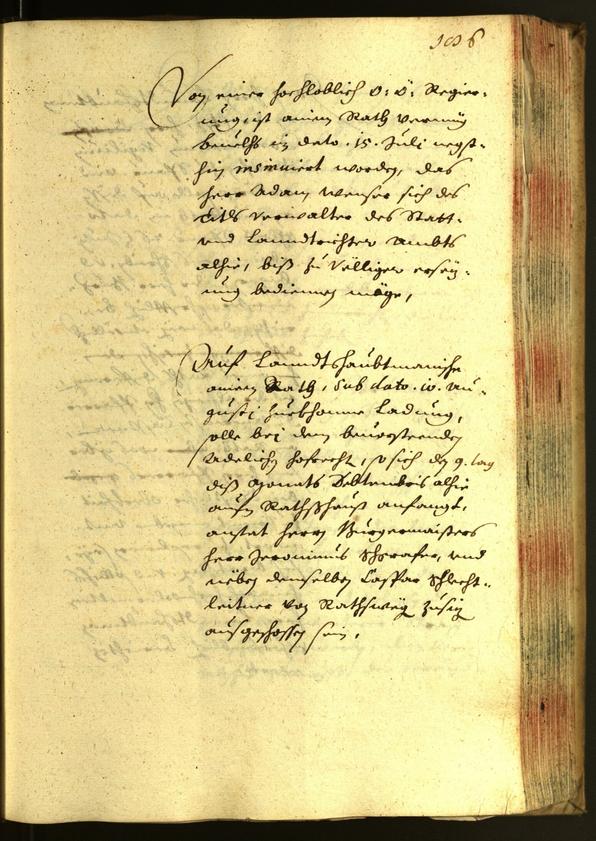 106
Von einer hochloblich O: Ö: Regier-
ung ist ainem Rath vermüg
beuelchs in dato 15. Juli negst-
hin insinuiert worden, das
herr Adam Wenser sich des
Titls Verwalter des Statt-
und Lanndtrichter Ambts
alhie, biß zu völliger ersez-
ung bediennen möge,
Auf Lanndtshaubtmanische
ainem Rath, sub dato 10. Au-
gusti zuekhomne Ladung,
solle bei dem beuorsteenden
Adelichen hofrecht, so sich den 9. tag
diß Monats Septembris alhie
aufm Rathshauß anfangt,
anstat herrn Burgermaisters
herr Jeronimus Schrafer, und
neben demselben Caspar Schlecht-
leitner von Rathsweg
ausgeschossen sein,